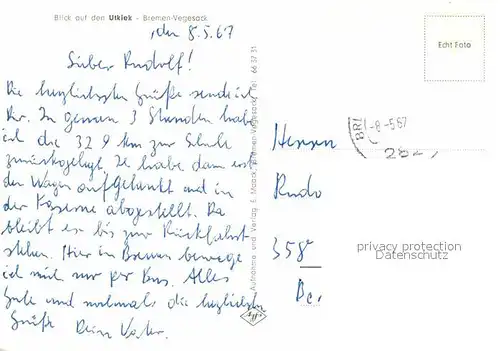 Blick auf den Utkiek - Bremen-Vegesack
den 8.5.67
Lieber Rudolf!
Die herzlichsten Grüße sende ich
Dir. In genau 3 Stunden habe
ich die 329 km zur Schule
zurückgelegt. Ich habe dann erst
den Wagen aufgetankt und in
der Kaserne abgestellt. Da
bleibt er bis zur Rückfahrt
stehen. Hier in Bremen bewege
ich mich nur per Bus. Alles
Gute und nochmals die herzlichsten
Grüße Dein Vater.
Aufnahme und Verlag E. Maack, Bremen-Vegesack, Tel. 66 57 31
Agfa
Echt Foto
-8.-5.67
282
Herrn
Rudo
358
privacy protection
Datenschutz